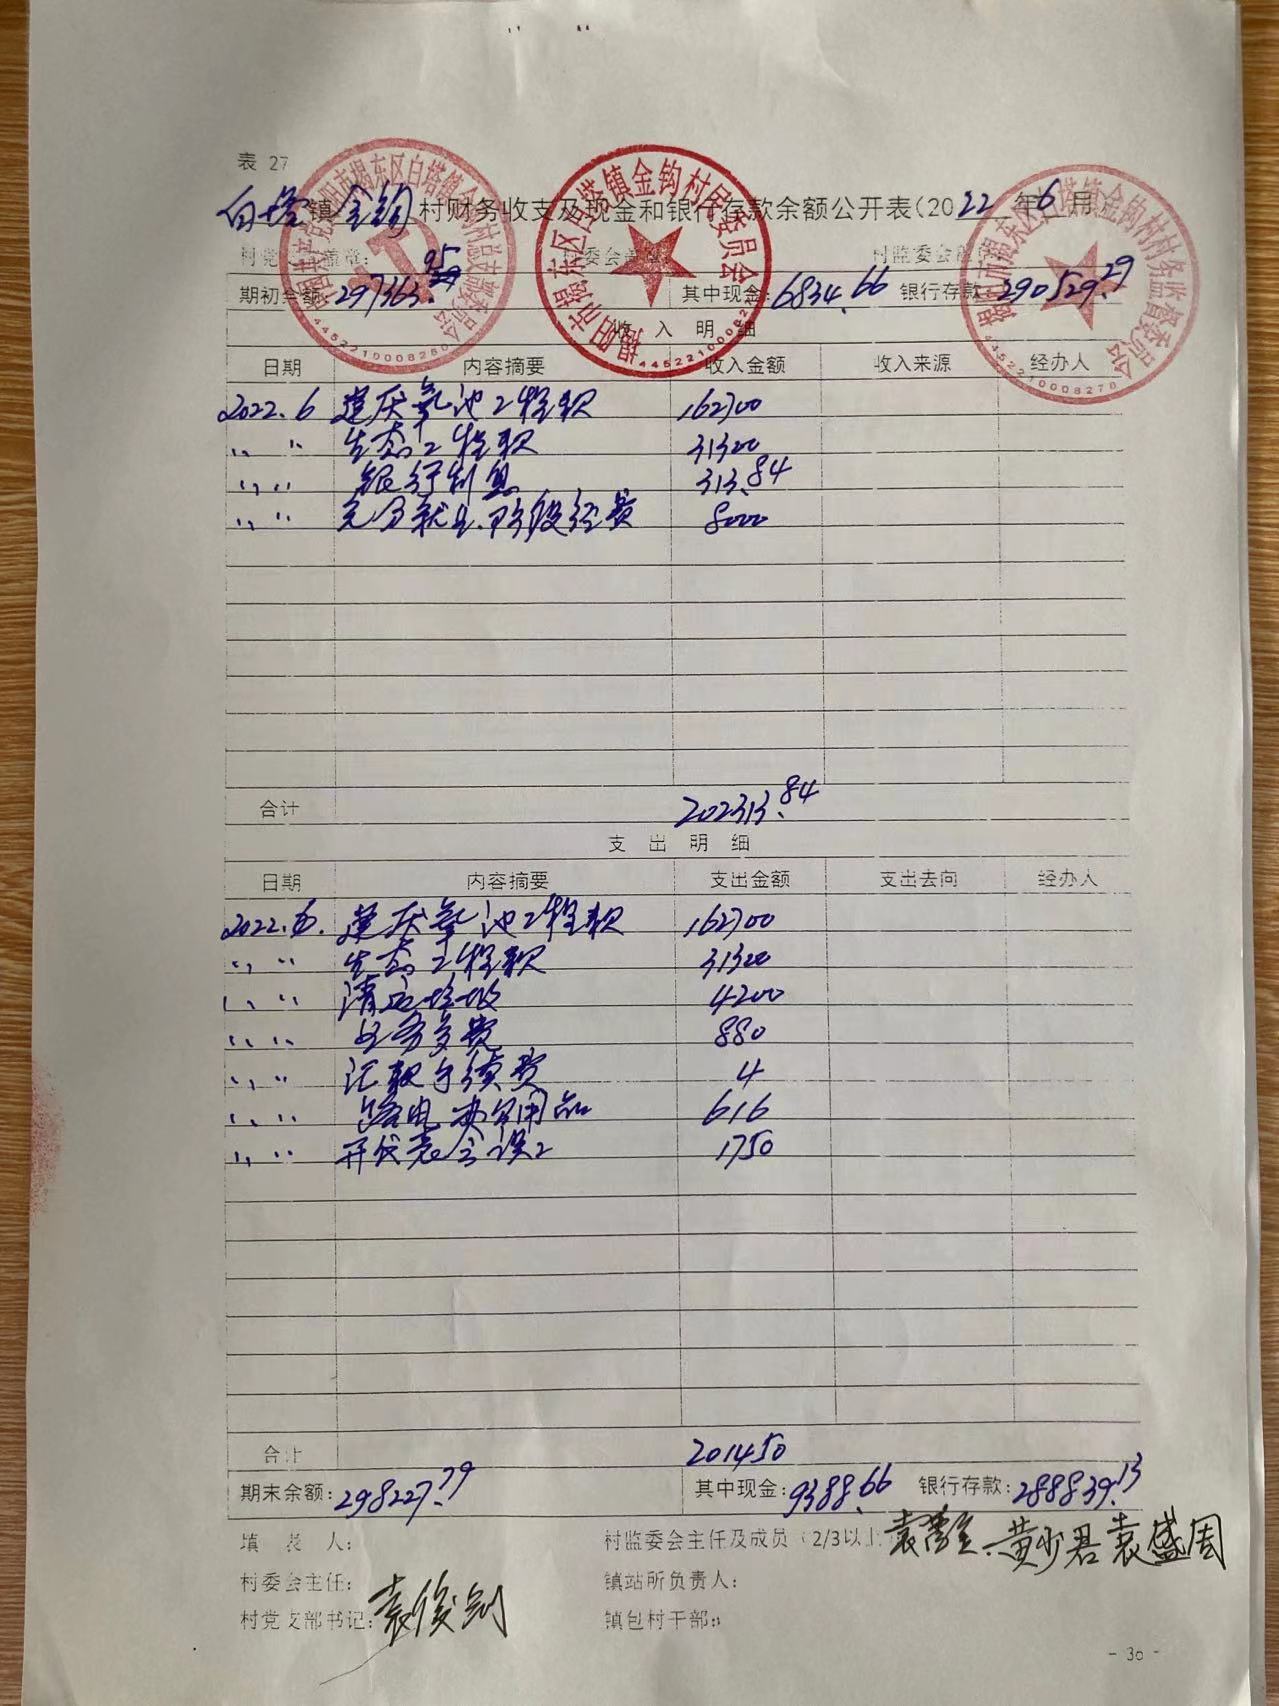 表 27
白塔镇 金钩 村财务收支及现金和银行存款余额公开表(2022年6月
村党 盖章: 村委会盖章 村监委会盖章
期初余额:297363.95 其中现金:6834.66 银行存款:290529.29
收 入 明 细
日期 内容摘要 收入金额 收入来源 经办人
2022.6 建厌氧池工程款 162700
〃 〃 生态工程款 31300
〃 〃 银行利息 313.84
〃 〃 充分就业 阶段经费 8000
合计 202313.84
支 出 明 细
日期 内容摘要 支出金额 支出去向 经办人
2022.6. 建厌氧池工程款 162700
〃 〃 生态工程款 31300
〃 〃 清运垃圾 4200
〃 〃 业务多费 880
〃 〃 汇款手续费 4
〃 〃 路电 办公用品 616
〃 〃 开代表会误工 1750
合计 201450
期末余额:298227.79 其中现金:9388.66 银行存款:288839.13
填 表 人: 村监委会主任及成员(2/3以上 黄少君 袁盛周
村委会主任: 镇站所负责人:
村党支部书记: 袁俊钊 镇包村干部:
- 30 -
中国共产党揭阳市揭东区白塔镇金钩村总支部委员会
4452210008260
揭阳市揭东区白塔镇金钩村民委员会
揭阳市揭东区白塔镇金钩村村务监督委员会
4452210008278